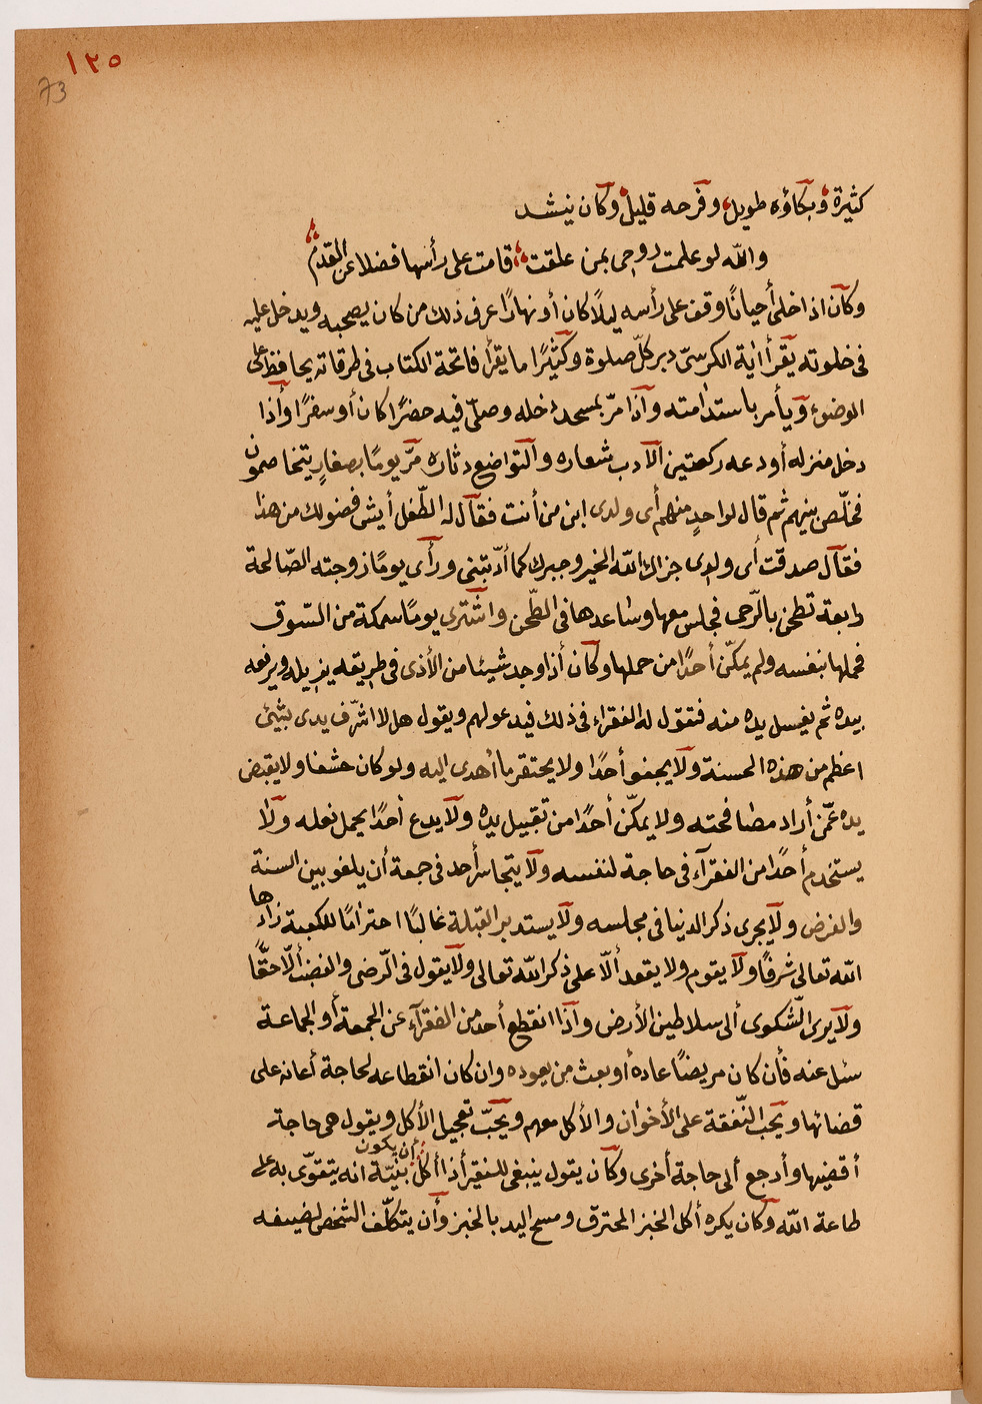 ١٢٥
73
كثيرة وبكاؤه طويل وفرحه قليل وكان ينشد
والله لو علمت روحى بمن علقت قامت على رأسها فضلا عن القدم
وكان اذا خلى أحيانًا وقف على رأسه ليلًا كان أو نهارًا عرف ذلك من كان يصحبه ويدخل عليه
فى خلوته يقرأ اٰية الكرسىّ دبر كلّ صلوة وكثيرًا ما يقرأ فاتحة الكتاب فى طرقاته يحافظ على
الوضوء ويأمر باستدامته وأذا مرّ بمسجد دخله وصلّى فيه حضرًا كان أو سفرًا وأذا
دخل منزله أودعه ركعتين الأدب شعاره والتواضع دثاره مرّ يومًا بصغار يتخاصمون
فخلّص بينهم ثم قال لواحدٍ منهم أى ولدى ابن من أنت فقال له الطّفل أيش فضولك من هذا
فقال صدقت أى ولدى جزاك الله الخير وجبرك كما أدّبتنى ورأى يومًا زوجته الصّالحة
رابعة تطحن بالرّحى فجلس معها وساعدها فى الطّحن واشترى يومًا سمكة من السّوق
فحملها بنفسه ولم يمكّن أحدًا من حملها وكان أذا وجد شيئا من الأذى فى طريقه يزيله ويرفعه
بيده ثم يغسل يده منه فتقول له الفقراء فى ذلك فيدعو لهم ويقول هل لا اشرّف يدى بشيئ
اعظم من هذه الحسنة ولا يجفو أحدًا ولا يحتقر ما أهدى اليه ولو كان حشفا ولا يقبض
يده عمّن أراد مصافحته ولا يمكّن أحدًا من تقبيل يده ولا يدع أحدًا يحمل نعله ولا
يستخدم أحدًا من الفقرآء فى حاجة لنفسه ولا يتجاسر أحد فى جمعة أن يلغو بين السنة
والفرض ولا يجرى ذكر الدنيا فى مجلسه ولا يستدبر القبلة غالبًا احترامًا للكعبة زادها
الله تعالى شرفًا ولا يقوم ولا يقعد ألّا على ذكر الله تعالى ولا يقول فى الرّضى والغضب ألّا حقًّا
ولا يرى الشّكوى ألى سلاطين الأرض وأذا انقطع أحد من الفقرآء عن الجمعة أو الجماعة
سئل عنه فأن كان مريضًا عاده أو بعث من يعوده وان كان انقطاعه لحاجة أعانه على
قضائها ويحب النّفقة على الأخوان والأكل معهم ويحبّ تعجيل الأكل ويقول هى حاجة
أقضيها وأرجع ألى حاجة أخرى وكان يقول ينبغى للفقير أذا أكل أن يكون بنيّة انه يتقوّى به على
طاعة الله وكان يكره أكل الخبز المحترق ومسح اليد بالخبز وأن يتكلّف الشخص لضيفه